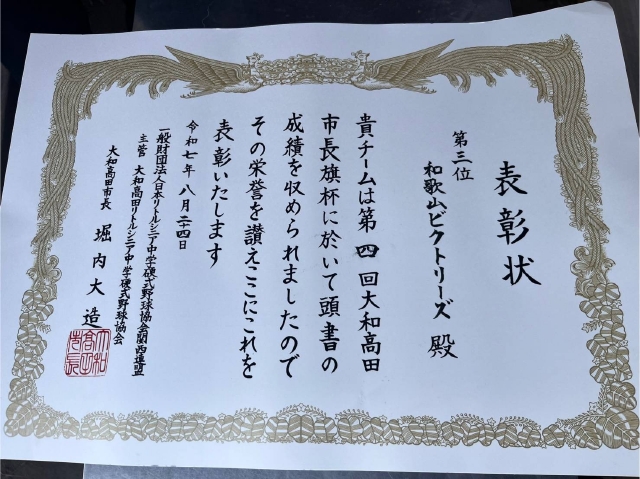 表彰状
第三位
和歌山ビクトリーズ 殿
貴チームは第四回大和高田
市長旗杯に於いて頭書の
成績を収められましたので
その栄誉を讃えここにこれを
表彰いたします
令和七年八月二十四日
一般財団法人日本リトルシニア中学硬式野球協会関西連盟
主管 大和高田リトルシニア中学硬式野球協会
大和高田市長 堀内大造